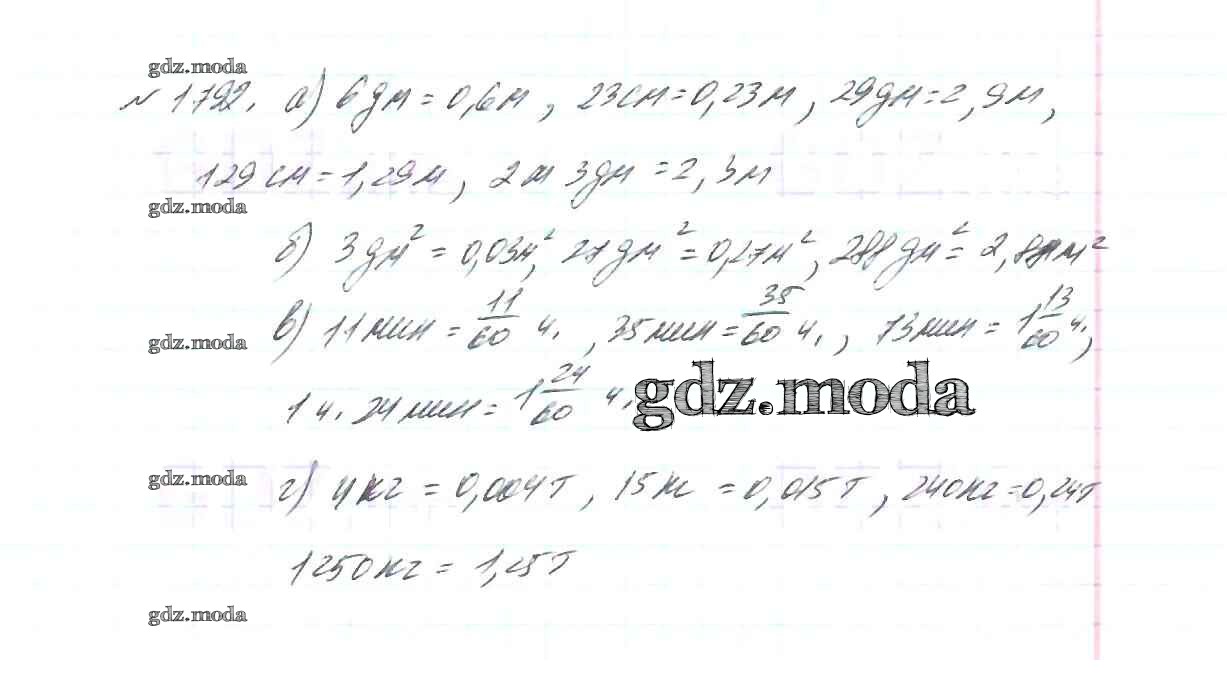 gdz.moda
№ 1792. а) 6 дм = 0,6 м, 23 см = 0,23 м, 29 дм = 2,9 м,
129 см = 1,29 м, 2 м 3 дм = 2,3 м
gdz.moda
б) 3 дм² = 0,03 м², 27 дм² = 0,27 м², 288 дм² = 2,88 м²
в) 11 мин = 11/60 ч., 35 мин = 35/60 ч., 73 мин = 1 13/60 ч.,
gdz.moda
1 ч. 24 мин = 1 24/60 ч.
gdz.moda
г) 4 кг = 0,004 т, 15 кг = 0,015 т, 240 кг = 0,24 т
gdz.moda
1250 кг = 1,25 т
gdz.moda